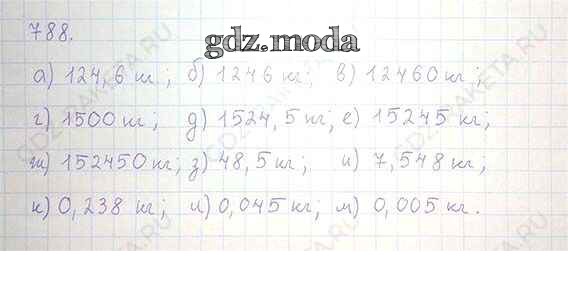 788.
gdz.moda
а) 124,6 кг; б) 1246 кг; в) 12460 кг;
г) 1500 кг; д) 1524,5 кг; е) 15245 кг;
ж) 152450 кг; з) 48,5 кг; и) 7,548 кг;
к) 0,238 кг; л) 0,045 кг; м) 0,005 кг.